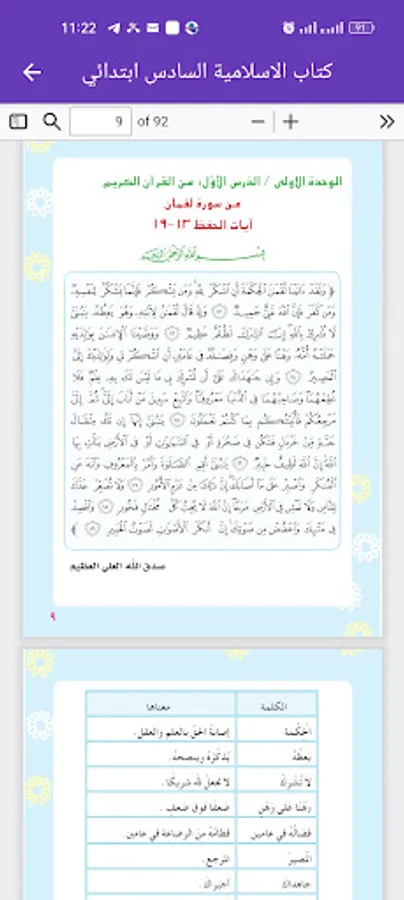 11:22
91
كتاب الاسلامية السادس ابتدائي
9 of 92
الوحدة الاولى / الدرس الأول: من القرآن الكريم
من سورة لقمان
آيات الحفظ ١٣-١٩
﴿ وَلَقَدْ ءَاتَيْنَا لُقْمَٰنَ ٱلْحِكْمَةَ أَنِ ٱشْكُرْ لِلَّهِ وَمَن يَشْكُرْ فَإِنَّمَا يَشْكُرُ لِنَفْسِهِۦ
وَمَن كَفَرَ فَإِنَّ ٱللَّهَ غَنِيٌّ حَمِيدٌ وَإِذْ قَالَ لُقْمَٰنُ لِٱبْنِهِۦ وَهُوَ يَعِظُهُۥ يَٰبُنَيَّ
لَا تُشْرِكْ بِٱللَّهِ إِنَّ ٱلشِّرْكَ لَظُلْمٌ عَظِيمٌ وَوَصَّيْنَا ٱلْإِنسَٰنَ بِوَٰلِدَيْهِ
حَمَلَتْهُ أُمُّهُۥ وَهْنًا عَلَىٰ وَهْنٍ وَفِصَٰلُهُۥ فِي عَامَيْنِ أَنِ ٱشْكُرْ لِي وَلِوَٰلِدَيْكَ إِلَيَّ
ٱلْمَصِيرُ وَإِن جَٰهَدَاكَ عَلَىٰ أَن تُشْرِكَ بِي مَا لَيْسَ لَكَ بِهِۦ عِلْمٌ فَلَا
تُطِعْهُمَا وَصَاحِبْهُمَا فِي ٱلدُّنْيَا مَعْرُوفًا وَٱتَّبِعْ سَبِيلَ مَنْ أَنَابَ إِلَيَّ ثُمَّ إِلَيَّ
مَرْجِعُكُمْ فَأُنَبِّئُكُم بِمَا كُنتُمْ تَعْمَلُونَ يَٰبُنَيَّ إِنَّهَآ إِن تَكُ مِثْقَالَ
حَبَّةٍ مِّنْ خَرْدَلٍ فَتَكُن فِي صَخْرَةٍ أَوْ فِي ٱلسَّمَٰوَٰتِ أَوْ فِي ٱلْأَرْضِ يَأْتِ بِهَا
ٱللَّهُ إِنَّ ٱللَّهَ لَطِيفٌ خَبِيرٌ يَٰبُنَيَّ أَقِمِ ٱلصَّلَوٰةَ وَأْمُرْ بِٱلْمَعْرُوفِ وَٱنْهَ عَنِ
ٱلْمُنكَرِ وَٱصْبِرْ عَلَىٰ مَآ أَصَابَكَ إِنَّ ذَٰلِكَ مِنْ عَزْمِ ٱلْأُمُورِ وَلَا تُصَعِّرْ خَدَّكَ
لِلنَّاسِ وَلَا تَمْشِ فِي ٱلْأَرْضِ مَرَحًا إِنَّ ٱللَّهَ لَا يُحِبُّ كُلَّ مُخْتَالٍ فَخُورٍ وَٱقْصِدْ
فِي مَشْيِكَ وَٱغْضُضْ مِن صَوْتِكَ إِنَّ أَنكَرَ ٱلْأَصْوَٰتِ لَصَوْتُ ٱلْحَمِيرِ ﴾
صدق الله العلي العظيم
٩
الكلمة معناها
الحِكْمة إصابةُ الحقّ بالعلم والعقل.
يعظُهُ يُذكّرُهُ وينصحهُ.
لا تُشركْ لا تجعلْ لله شريكًا.
وهْنًا على وهْنٍ ضعفًا فوق ضعفٍ.
فصالُهُ في عامين فطامُهُ من الرضاعة في عامين.
المصيرُ المرجع.
جاهداك أجبراك.